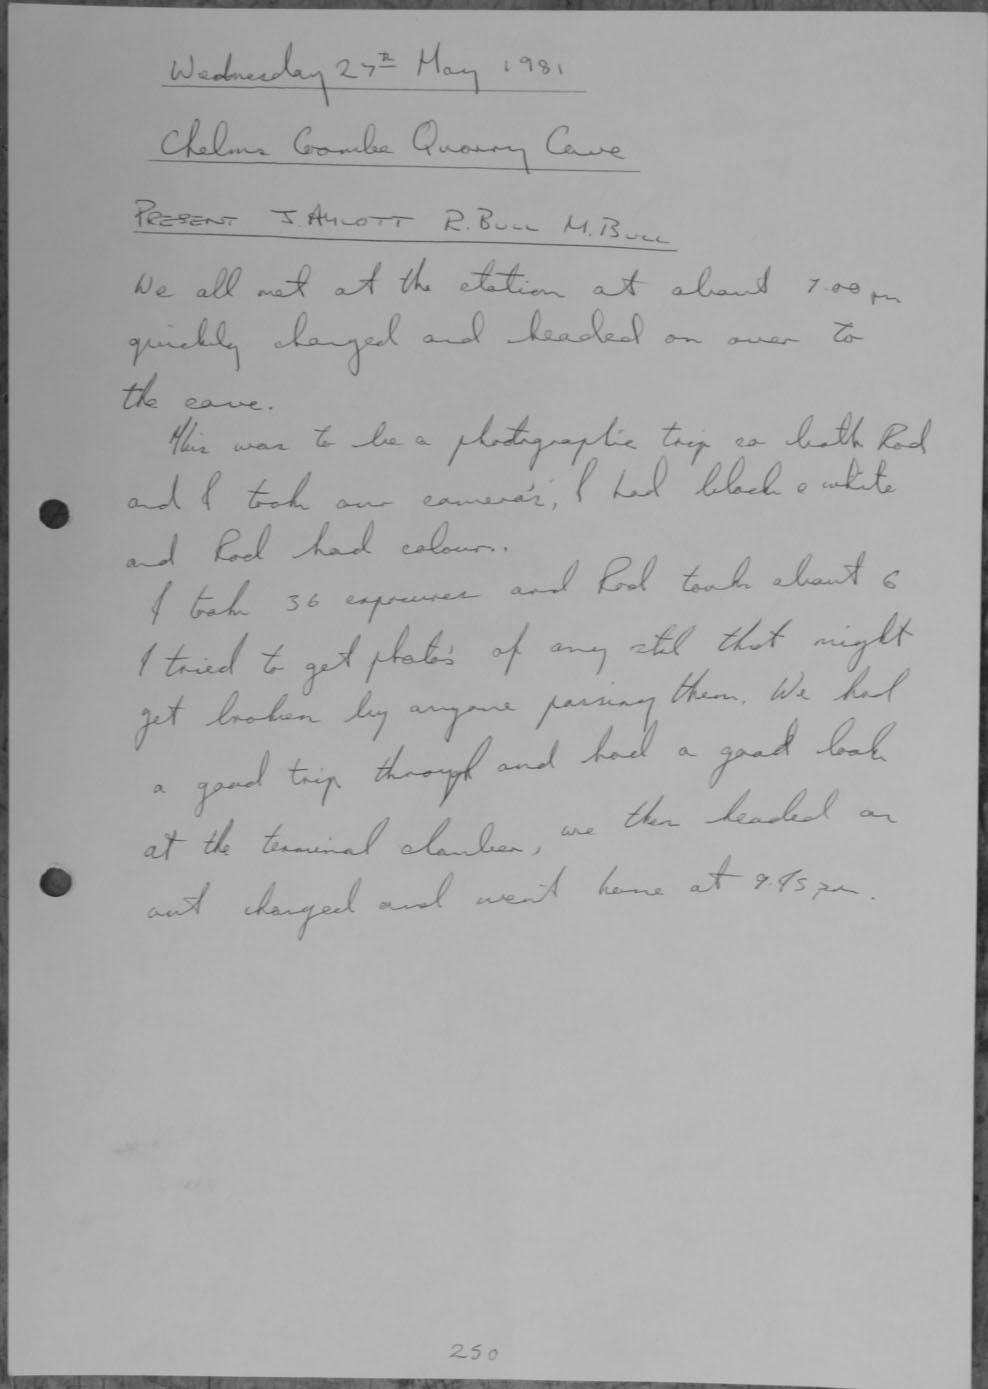 Wednesday 27th May 1981
Chelms Coombe Quarry Cave
PRESENT J. AYLOTT R. BULL M. BULL
We all met at the station at about 7.00 pm
quickly changed and headed on over to
the cave.
This was to be a photographic trip so both Rod
and I took our camera's, I had black & white
and Rod had colour.
I took 36 exposures and Rod took about 6
I tried to get photo's of any stal that might
get broken by anyone passing them. We had
a good trip through and had a good look
at the terminal chamber, we then headed on
out changed and went home at 9.45 pm.
250